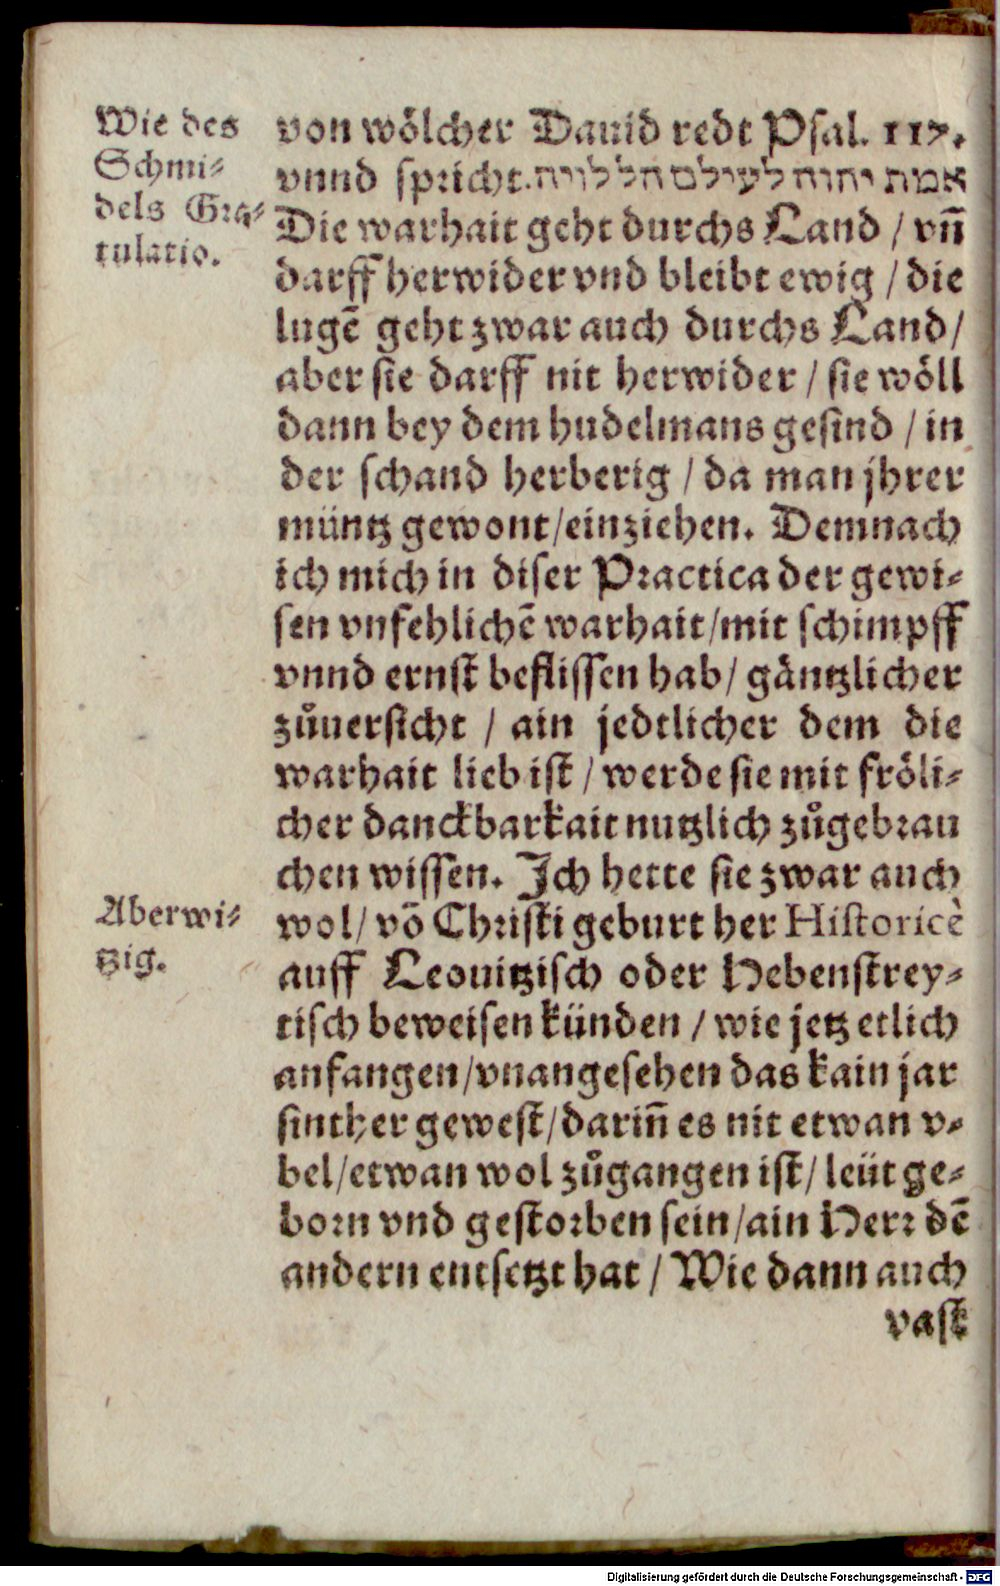 Wie des
Schmi-
dels Gra-
tulatio.
von wölcher Dauid redt Psal. 117.
vnnd spricht. אמת יהוה לעולם הללויה
Die warhait geht durchs Land / vñ
darff herwider vnd bleibt ewig / die
lugẽ geht zwar auch durchs Land/
aber sie darff nit herwider / sie wöll
dann bey dem hudelmans gesind / in
der schand herberig / da man jhrer
müntz gewont/einziehen. Demnach
ich mich in diser Practica der gewi-
sen vnfehlichẽ warhait/mit schimpff
vnnd ernst beflissen hab/ gäntzlicher
zůuersicht / ain jedtlicher dem die
warhait lieb ist / werde sie mit fröli-
cher danckbarkait nutzlich zůgebrau
chen wissen. Ich hette sie zwar auch
Aberwi-
tzig.
wol/ võ Christi geburt her Historicè
auff Leouitzisch oder Hebenstrey-
tisch beweisen künden / wie jetz etlich
anfangen/vnangesehen das kain jar
sinther gewest/dariñ es nit etwan v-
bel/etwan wol zůgangen ist/ leüt ge-
born vnd gestorben sein/ain Herr dẽ
andern entsetzt hat / Wie dann auch
vast
Digitalisierung gefördert durch die Deutsche Forschungsgemeinschaft - DFG